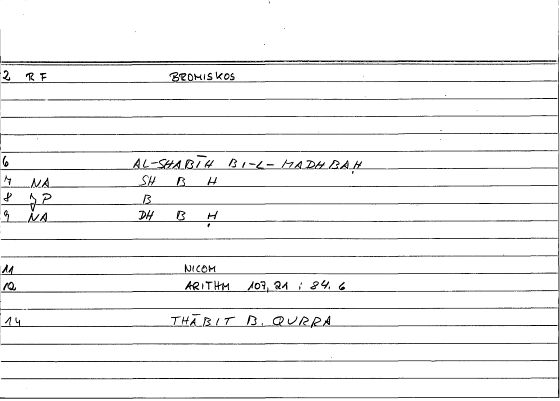 2 RF BROMISKOS
6 AL-SHABĪH BI-L-MADHBAḤ
7 NA SH B H
8 JP B
9 NA DH B Ḥ
11 NICOM
12 ARITHM 107,21 : 84.6
14 THĀBIT B. QURRA